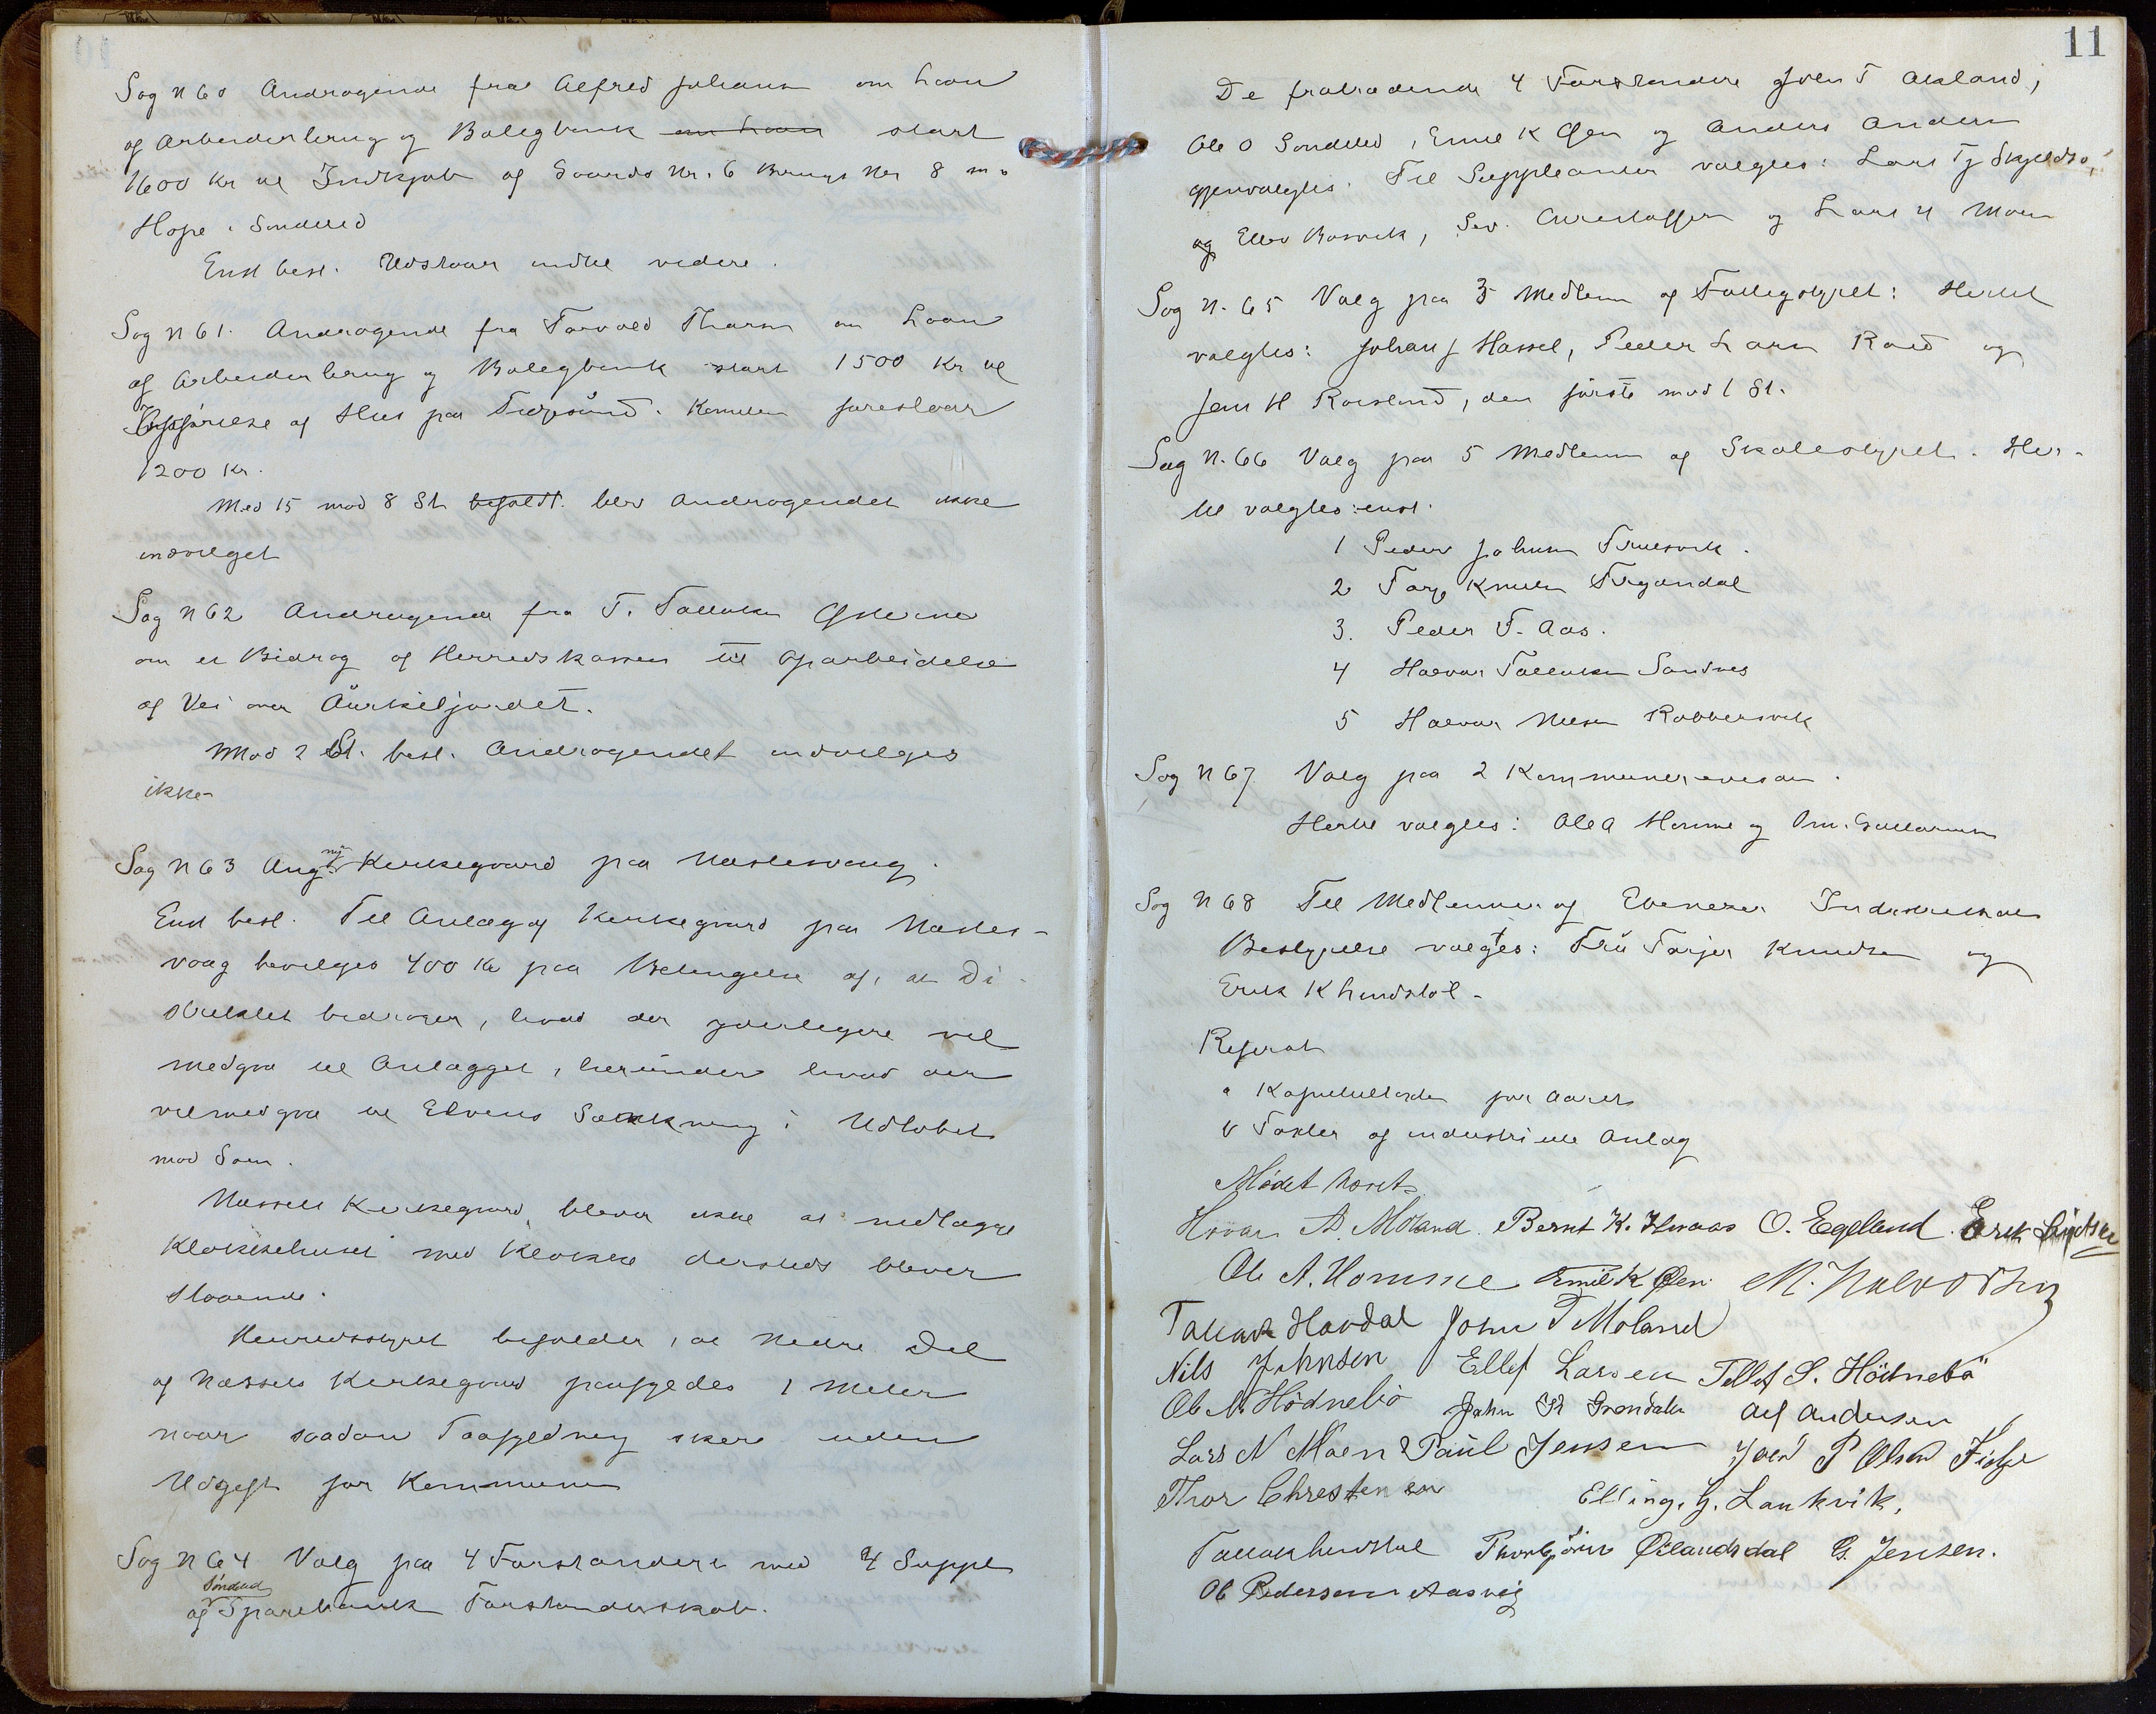 Sag N 60 Andragende fra Alfred Johansen om Laan
af Arbeiderbrug og Boligbank om Laan stort
1600 Kr til Indkjøb af Gaards Nr. 6 Brugs Nr 8
Hope i Søndeled
Enst besl. Udstaar indtil videre.
Sag N 61. Andragende fra Torvald Thorsen om Laan
af Arbeiderbrug og Boligbank stort 1500 Kr til
Opførelse af Hus paa Fidjesund. Komiteen foreslaar
1200 Kr.
Med 15 mod 8 St. blev Andragendet ikke
indvilget
Sag N 62 Andragende fra T. Tallaksen
om et Bidrag af Herredskassen til Oparbeidelse
af Vei over
Mod 2 St. besl. Andragendet indvilges
ikke
Sag N 63 Ang. ny Kirkegaard paa Næslesvaag.
Enst besl. Til Anlæg af Kirkegaard paa Næsles-
vaag bevilges 400 Kr paa Betingelse af, at Di-
striktet bidrager, hvad der yderligere vil
medgaa til Anlægget, herunder hvad der
vil medgaa til Elvens Sænkning i Udløbet
mod Søen.
Kirkegaard bliver ikke at nedlægge
Klokkehuset med Klokke dersteds bliver
staaende.
Herredsstyret besl­utter, at Nedre Del
af Kirkegaard paafyldes 1 Meter
naar saadan Paafyldning skeer uden
Udgift for Kommunen
Sag N 64 Valg paa 4 Forstandere med 4 Suppl
af Søndeled Sparebanks Forstanderskab.
11
De fratrædende 4 Forstandere John T Akland,
Ole O Søndeled, Emil K Øen og Anders Andersen
gjenvalgtes. Til Suppleanter valgtes: Lars Tj Skjeldsø,
og Ellev Bosvik, Sev. Christoffersen og Lars N Moen
Sag N. 65 Valg paa 3 Medlem af Fattigstyret: Hertil
valgtes: Johan J Hassel, Peder Larsen Roed og
Jens H Røisland, den første mod 1 St.
Sag N. 66 Valg paa 5 Medlemmer af Skolestyret. Her-
til valgtes: enst.
1 Peder Johnsen
2 Torje Knutsen Trydal
3. Peder T. Aas.
4 Halvor Tallaksen Sandnes
5 Halvor Nilsen Robbersvik
Sag N 67 Valg paa 2 Kommunerevisorer.
Hertil valgtes: Ole A Homme og
Sag N 68 Til Medlemmer af Ebenezer
Bestyrelse valgtes: Frü Torjer Knudsen og
Erik K Lindstøl.
Referat
a Kapiteltakster for Aaret
b Takster af industrielle Anlæg
Mødet hævet.
Halvor A. Moland. Bernt K. Hvaas O. Egeland. Erik Lindstøl
Ole A. Homme Emil K Øen. M. Halvorsen
Tallak Havdal John T Moland
Nils Johnsen Ellef Larsen Tellef S. Hödnebö
Ole N Hödnebö John K Grøndalen Alf Andersen
Lars N Moen Paül Jensen Joen P Olsen Fidje
Thor Christensen Elling. G. Lankvik,
Tallak Lindstøl Thorbjörn Øslandsdal G. Jensen.
Ole Pedersen Aasvig